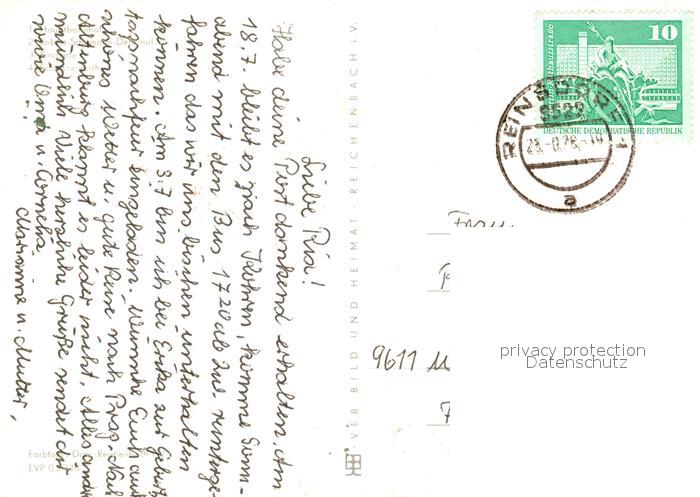 Liebe Ria!
Habe deine Post dankend erhalten. Am
18.7. bleibt es nach Kohren, komme Sonn-
abend mit den Bus 17 20 ab Zul. runterge-
fahren das wir uns bischen unterhalten
können. Am 3.7 bin ich bei Erika zur Geburts
tagsnachfeier eingeladen. Wünsche Euch auch
schönes Wetter u. gute Reise nach Prag. Nach
klappt es leider nicht. Alles andere
mündlich Viele herzliche Grüße sendet dir
Marianne u. Mutter,
VEB BILD UND HEIMAT · REICHENBACH i. V.
EVP
10
DEUTSCHE DEMOKRATISCHE REPUBLIK
REINSDORF
a
Frau
9611
privacy protection
Datenschutz